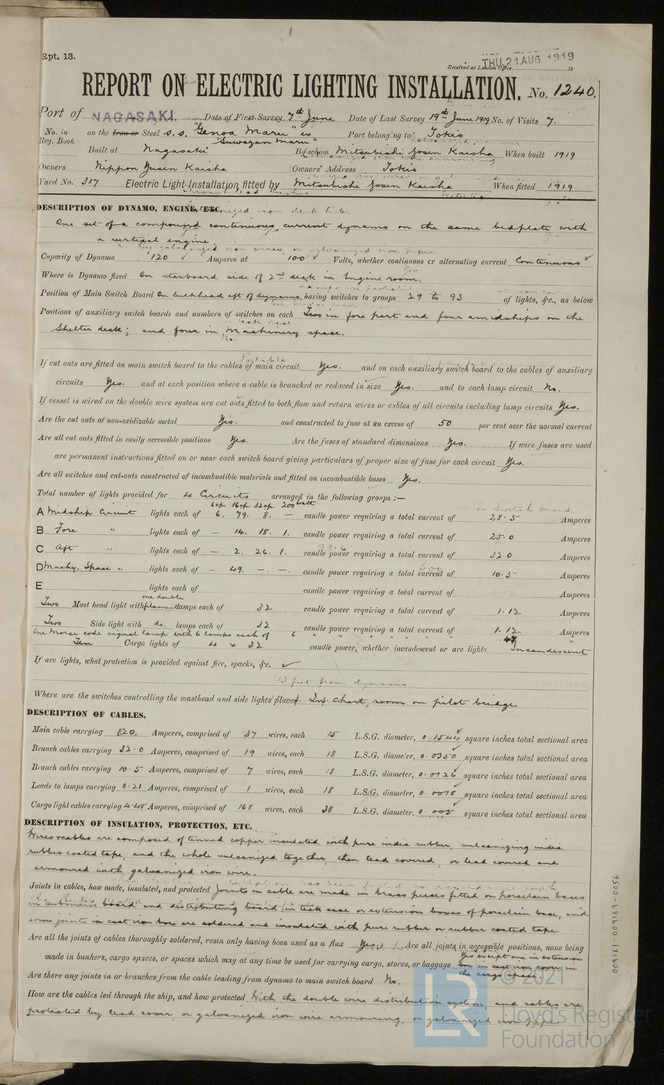 Rpt. 13.
Received at London Office THU. 21 AUG. 1919
REPORT ON ELECTRIC LIGHTING INSTALLATION. No. 1240.
Port of NAGASAKI. Date of First Survey 7th June Date of Last Survey 19th June 1919 No. of Visits 7.
No. in Reg. Book on the Iron or Steel S.S. "Genoa Maru" ex "Suwagan Maru" Port belonging to Tokio
Built at Nagasaki By whom Mitsubishi Zosen Kaisha When built 1919
Owners Nippon Yusen Kaisha Owners' Address Tokio
Yard No. 317 Electric Light Installation fitted by Mitsubishi Zosen Kaisha When fitted 1919
DESCRIPTION OF DYNAMO, ENGINE, ETC.
One set of a compound continuous current dynamo on the same bedplate with
a vertical engine.
Capacity of Dynamo 120 Amperes at 100 Volts, whether continuous or alternating current Continuous
Where is Dynamo fixed On starboard side of 2nd deck in Engine room.
Position of Main Switch Board On bulkhead aft of dynamo having switches to groups 29 to 93 of lights, &c., as below
Positions of auxiliary switch boards and numbers of switches on each Two in fore part and four amidships on the
Shelter deck; and four in Machinery space.
If cut outs are fitted on main switch board to the cables of main circuit Yes. and on each auxiliary switch board to the cables of auxiliary
circuits Yes. and at each position where a cable is branched or reduced in size Yes. and to each lamp circuit No.
If vessel is wired on the double wire system are cut outs fitted to both flow and return wires or cables of all circuits including lamp circuits Yes.
Are the cut outs of non-oxidizable metal Yes. and constructed to fuse at an excess of 50 per cent over the normal current
Are all cut outs fitted in easily accessible positions Yes. Are the fuses of standard dimensions Yes. If wire fuses are used
are permanent instructions fitted on or near each switch board giving particulars of proper size of fuse for each circuit Yes.
Are all switches and cut-outs constructed of incombustible materials and fitted on incombustible bases Yes.
Total number of lights provided for 4 Circuits arranged in the following groups :—
6cp 16cp 32cp 200watt
A Midship Circuit lights each of 6. 79. 8. — candle power requiring a total current of 28.5 Amperes
B Fore " lights each of — 14. 18. 1. candle power requiring a total current of 25.0 Amperes
C Aft " lights each of — 2. 26. 1. candle power requiring a total current of 32.0 Amperes
D Machy. Space " lights each of — 49. — — candle power requiring a total current of 10.5 Amperes
E lights each of candle power requiring a total current of Amperes
Two Mast head light with one double filament lamps each of 32 candle power requiring a total current of 1.12 Amperes
Two Side light with do. lamps each of 32 candle power requiring a total current of 1.12 Amperes
One Morse code signal lamp with 6 lamps each of 6 " " " " " " "
Ten Cargo lights of 4 x 32 candle power, whether incandescent or arc lights Incandescent
If arc lights, what protection is provided against fire, sparks, &c.
Where are the switches controlling the masthead and side lights placed In Chart room on pilot bridge
DESCRIPTION OF CABLES.
Main cable carrying 120 Amperes, comprised of 37 wires, each 15 L.S.G. diameter, 0.1544 square inches total sectional area
Branch cables carrying 32.0 Amperes, comprised of 19 wires, each 18 L.S.G. diameter, 0.0350 square inches total sectional area
Branch cables carrying 10.5 Amperes, comprised of 7 wires, each 18 L.S.G. diameter, 0.0126 square inches total sectional area
Leads to lamps carrying 0.21 Amperes, comprised of 1 wires, each 18 L.S.G. diameter, 0.0018 square inches total sectional area
Cargo light cables carrying 4.48 Amperes, comprised of 168 wires, each 38 L.S.G. diameter, 0.005 square inches total sectional area
DESCRIPTION OF INSULATION, PROTECTION, ETC.
Wires & cables are composed of tinned copper insulated with pure india rubber, vulcanizing india
rubber coated tape, and the whole vulcanized together, then lead covered, or lead covered and
armoured with galvanized iron wire.
Joints in cables, how made, insulated, and protected Joints in cable are made in brass pieces fitted on porcelain bases
board and distributing board in teak case or extension boxes of porcelain base, and
some joints in cast iron box are soldered and insulated with pure rubber or rubber coated tape.
Are all the joints of cables thoroughly soldered, resin only having been used as a flux Yes. Are all joints in accessible positions, none being
made in bunkers, cargo spaces, or spaces which may at any time be used for carrying cargo, stores, or baggage Yes except one in extension box in cast iron cover in the cargo space
Are there any joints in or branches from the cable leading from dynamo to main switch board No.
How are the cables led through the ship, and how protected With the double wire distribution system, and cables are
protected by lead cover, or galvanized iron wire armouring, or galvanized iron pipe
009161-009169-0056
© 2021
LR
Lloyd's Register
Foundation